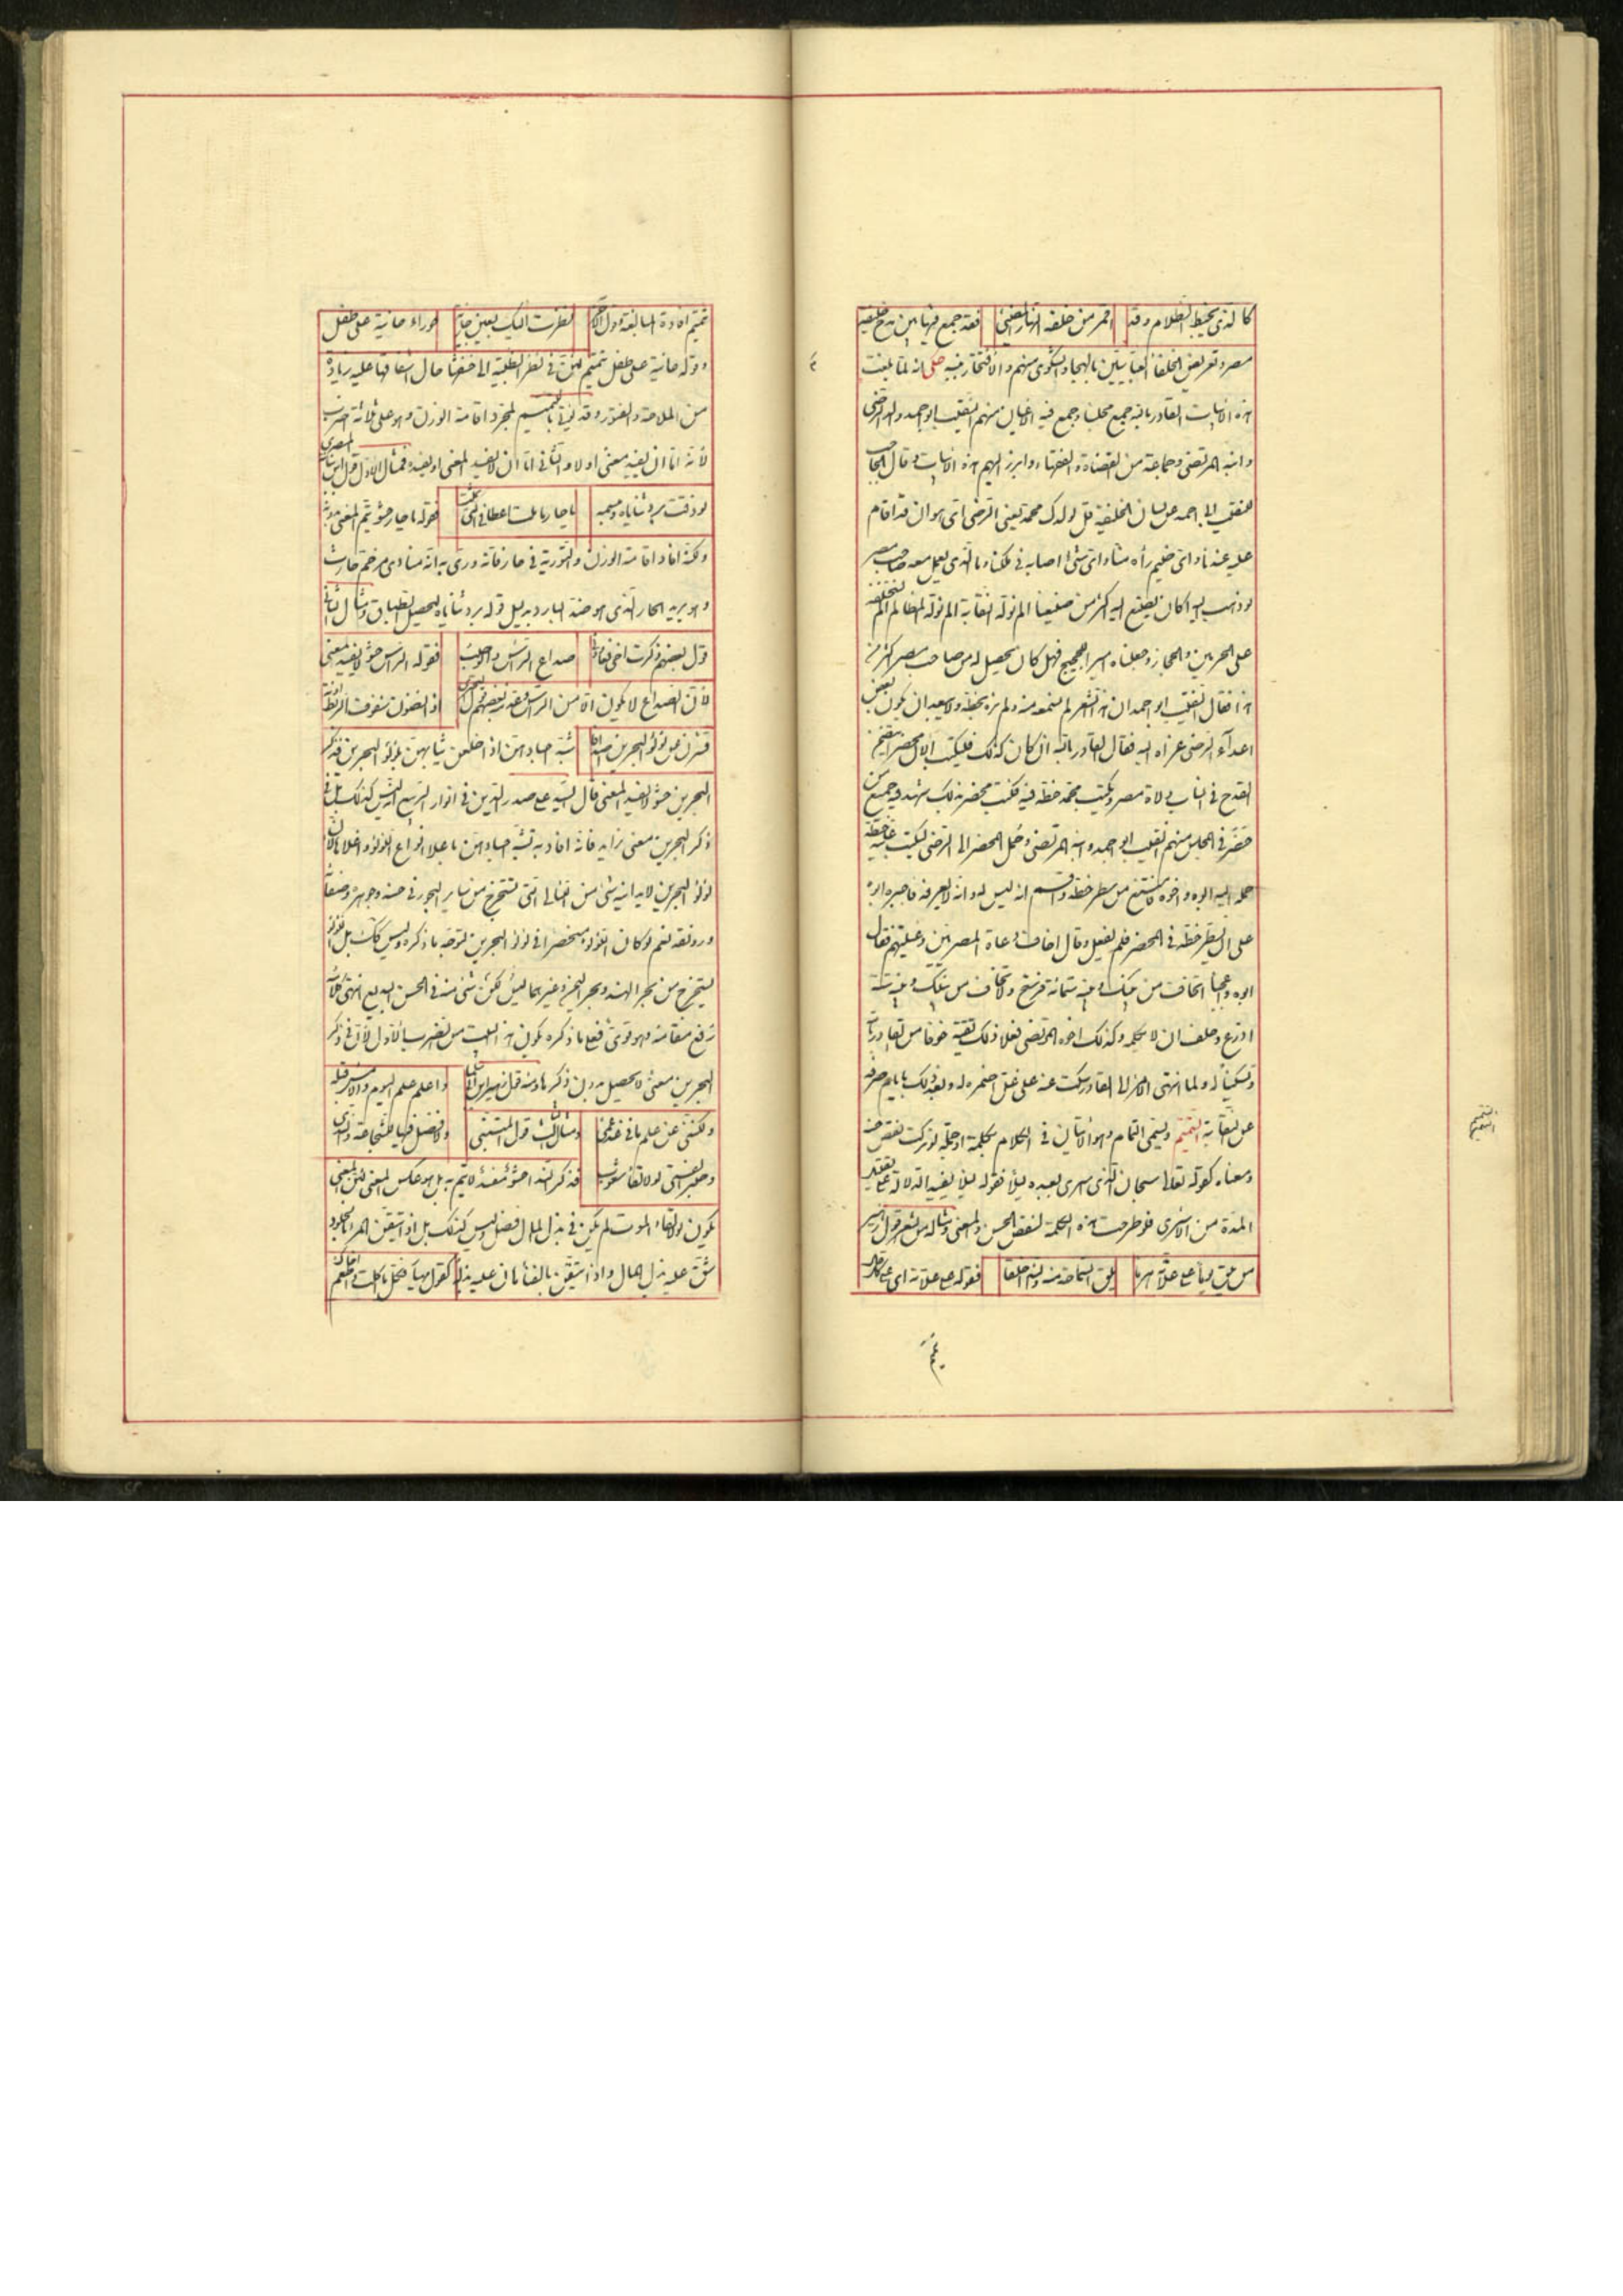 كالذي يخبط الظلام وقد اقمر من خلفه النهار المضي فقد جمع فيها بين مدح خليفة
مصر وتعريض الخلفاء العباسيين بالهجاء والشكوى منهم والافتخار بنسبه حكى انه لما بلغت
هذه الابيات القادر بالله جمع مجلسا وجمع فيه الاعيان منهم النقيب ابو احمد والد الرضي
وابنه المرتضى وجماعة من القضاة والفقهاء وابرز اليهم هذه الابيات وقال الحاجب
للنقيب ابي احمد عن لسان الخليفة قل لولدك محمد يعني الرضي اي هوان قد اقام
عليه عندنا واي ضيم رآه منا واي شيء اصابه في ملكنا وما الذي يعمل معه صاحب مصر
لو ذهب اليه اكان يصنع اليه اكثر من صنيعنا الم نوله النقابة الم نوله المظالم الم نستخلفه
على الحرمين والحجاز وجعلناه امير الحجيج فهل كان يحصل له من صاحب مصر اكثر من
هذا فقال النقيب ابو احمد ان هذا الشعر لم نسمعه منه ولم نره بخطه ولا يبعد ان يكون بعض
اعدآء الرضي عزاه اليه فقال القادر بالله ان كان كذلك فليكتب الآن محضر يتضمن
القدح في انساب ولاة مصر ويكتب محمد خطه فيه فكتب محضر بذلك شهد فيه جميع من
حضر في المجلس منهم النقيب ابو احمد وابنه المرتضى وحمل المحضر الى الرضي ليكتب فيه خطه
حمله اليه ابوه واخوه فامتنع من سطر خطه واقسم انه ليس له وانه لا يعرفه فاجبره ابوه
على ان يسطر خطه في المحضر فلم يفعل وقال اخاف دعاة المصريين وغيلتهم فقال
ابوه وا عجبا اتخاف من بينك وبينه ستمائة فرسخ ولا تخاف من بينك وبينه ستة
اذرع وحلف ان لا يكلمه وكذلك اخوه المرتضى فعلا ذلك تقية خوفا من القادر بالله
وتسكينا له ولما انتهى الامر الى القادر سكت عنه على غل اضمره له وبعد ذلك بايام صرفه
عن النقابة التتميم ويسمى التمام وهو الاتيان في الكلام بكلمة او جملة لو تركت نقص حسنه
ومعناه كقوله تعالى سبحان الذي اسرى بعبده ليلا فقوله ليلا يفيد الدلالة على تقليل
المدة من الاسرى فلو طرحت هذه الكلمة لنقص الحسن والمعنى ومثاله من الشعر قول زهير
من يلق يوما على علاته هرما يلق السماحة منه والندى خلقا فقوله على علاته اي على كل حال
التتميم
تتميم افادة المبالغة وقول الآخر نظرت اليك بعين جازئة حوراء حانية على طفل
وقوله حانية على طفل تتميم لان في نظر الظبية الى خشفها حال اشفاقها عليه زيادة
من الملاحة والفتور وقد يؤتى بالتتميم لمجرد اقامة الوزن وهو على ثلاثة اضرب
لانه اما ان يفيد معنى اولا والثاني اما ان لا يفسد المعنى او يفسده فمثال الاول قول ابن نباتة المصري
لو ذقت برد ثناياه ومبسمه يا حار ما لمت اعطافي التي ثملت فقوله يا حار حشو يتم المعنى بدونه
ولكنه افاد اقامة الوزن والتورية في حار فانه ورى به انه منادى مرخم حارث
وهو يريد الحار الذي هو ضد البارد بدليل قوله برد ثناياه ليحصل الطباق ومثال الثاني
قول بعضهم ذكرت اخي فعاودني صداع الراس والوصب فقوله الراس حشو لا يفسد المعنى
لان الصداع لا يكون الا من الراس
البحرين حشو لا يفسد المعنى قال السيد علي صدر الدين في انوار الربيع انه ليس كذلك بل في
ذكر البحرين معنى زايد فانه افاد به تشبيه اجسادهن باعلا انواع اللؤلؤ واغلاها لان
لؤلؤ البحرين لا يدانيه شئ من اللئالي التي تستخرج من ساير البحور في حسنه وجوهره وصفائه
ورونقه نعم لو كان اللؤلؤ منحصرا في لؤلؤ البحرين لتوجه ما ذكره وليس كذلك بل اللؤلؤ
يستخرج من بحر الهند وبحر اليمن وغيرهما ليس لكن شئ منه في الحسن البديع انتهى كلامه
رفع مقامه وهو قوي فعلى ما ذكره يكون هذا البيت من الضرب الاول لان في ذكر
البحرين معنى لا يحصل بدون ذكرها ومنه قول زهير واعلم علم اليوم والامس قبله
ولكنني عن علم ما في غد عمي ومثال الثالث قول المتنبي ولا فضل فيها للشجاعة والندى
وصبر الفتى لولا لقاء شعوب فذكر الندا حشو مفسد لا يتم به بل هو عكس المعنى لان المعنى
يكون لولا لقاء الموت لم يكن في بذل المال فضل وليس كذلك بل اذا تيقن المرء بالخلود
شق عليه بذل المال واذا تيقن بالفناء هان عليه بذله